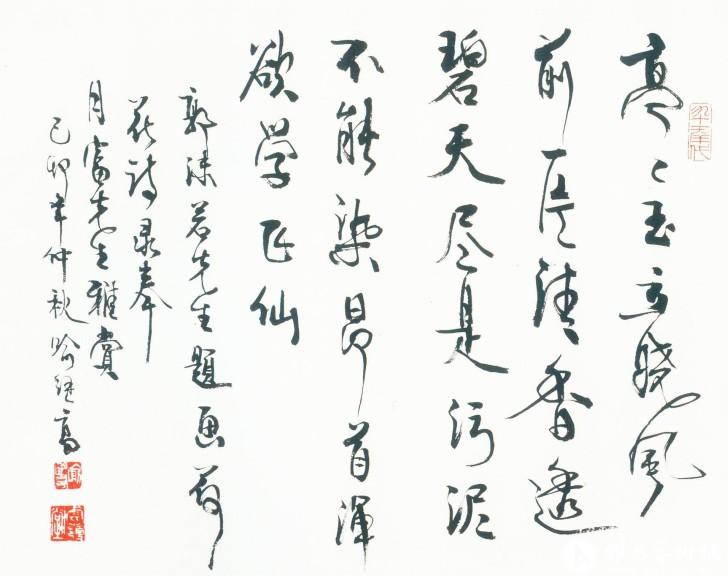 亭〻玉立晓风
前一片清香透
碧天尽是污泥
不能染昂首浑
欲学飞仙
郭沫若先生题画荷
花诗录奉
月富先生雅赏
己卯年仲秋喻继高